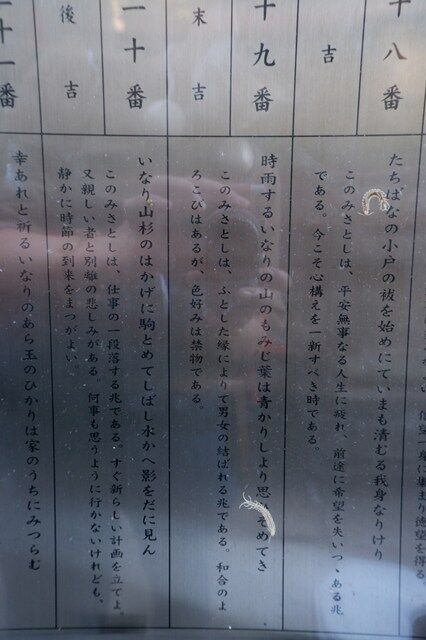 十八番
吉
たちばなの小戸の祓を始めにていまも清むる我身なりけり
このみさとしは、平安無事なる人生に疲れ、前途に希望を失いつゝある兆
である。今こそ心構えを一新すべき時である。
十九番
末吉
時雨するいなりの山のもみじ葉は青かりしより思そめてき
このみさとしは、ふとした縁によりて男女の結ばれる兆である。和合のよ
ろこびはあるが、色好みは禁物である。
二十番
後吉
いなり山杉のはかげに駒とめてしばし水かへ影をだに見ん
このみさとしは、仕事の一段落する兆である。すぐ新らしい計画を立てよ。
又親しい者と別離の悲しみがある。何事も思うように行かないけれども、
静かに時節の到来をまつがよい。
二十一番
幸あれと祈るいなりのあら玉のひかりは家のうちにみつらむ